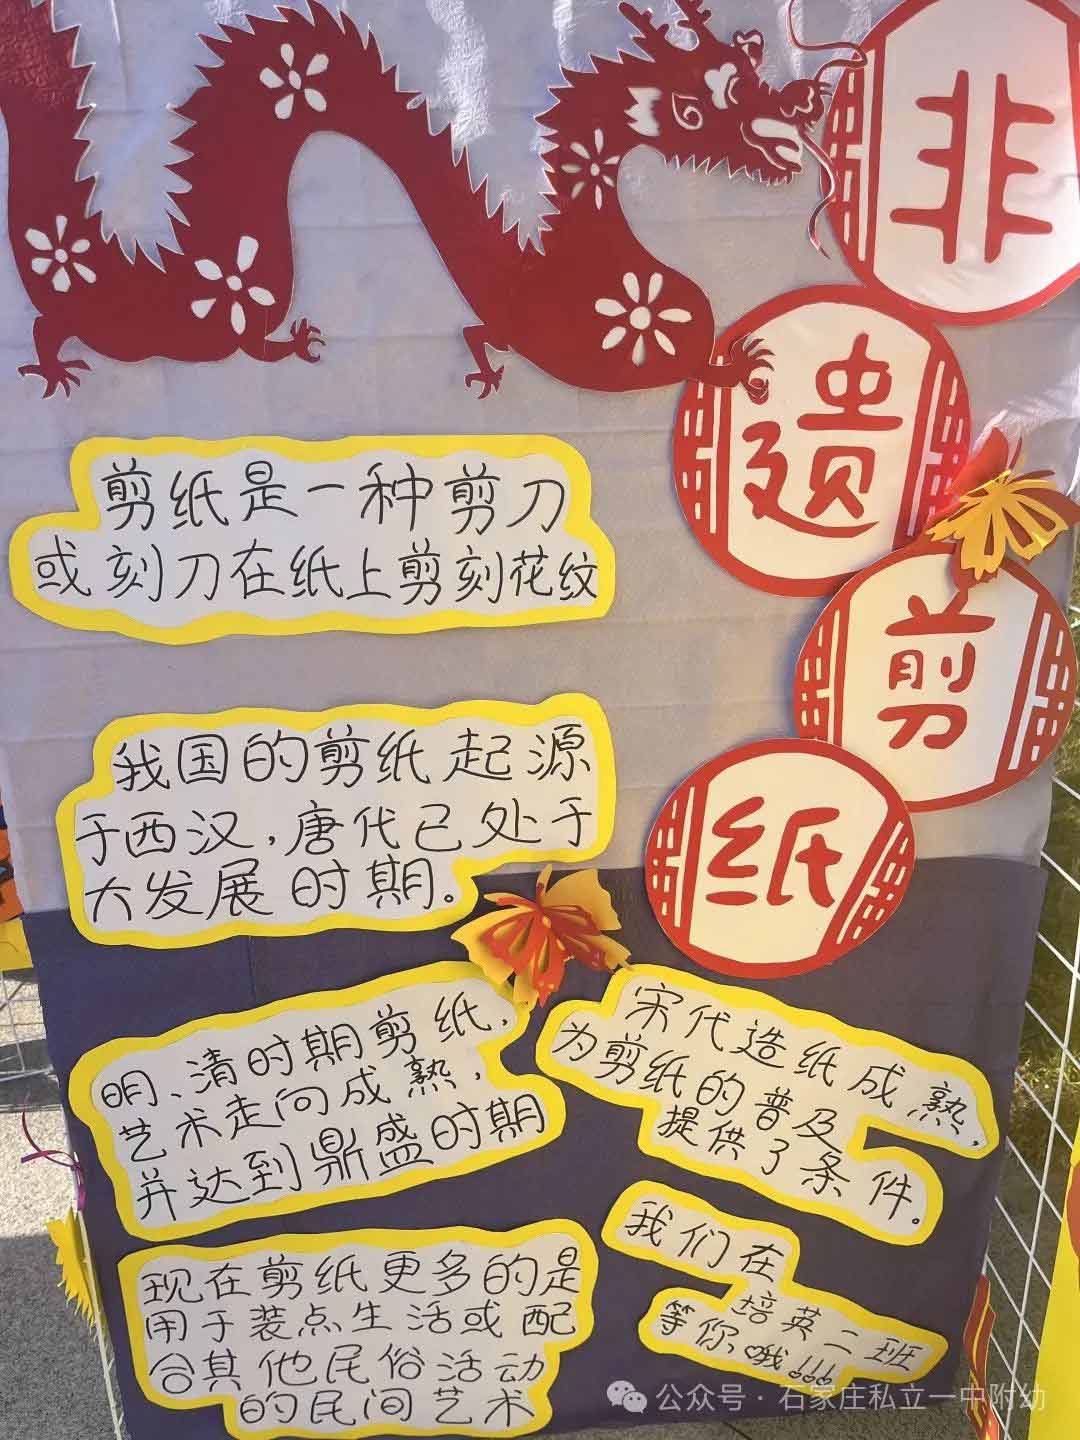 非
遗
剪
纸
剪纸是一种剪刀
或刻刀在纸上剪刻花纹
我国的剪纸起源
于西汉，唐代已处于
大发展时期。
明、清时期剪纸，
艺术走向成熟，
并达到鼎盛时期
宋代造纸成熟，
为剪纸的普及
提供了条件。
现在剪纸更多的是
用于装点生活或配
合其他民俗活动
的民间艺术
我们在
培英二班
等你哦!!!
公众号·石家庄私立一中附幼